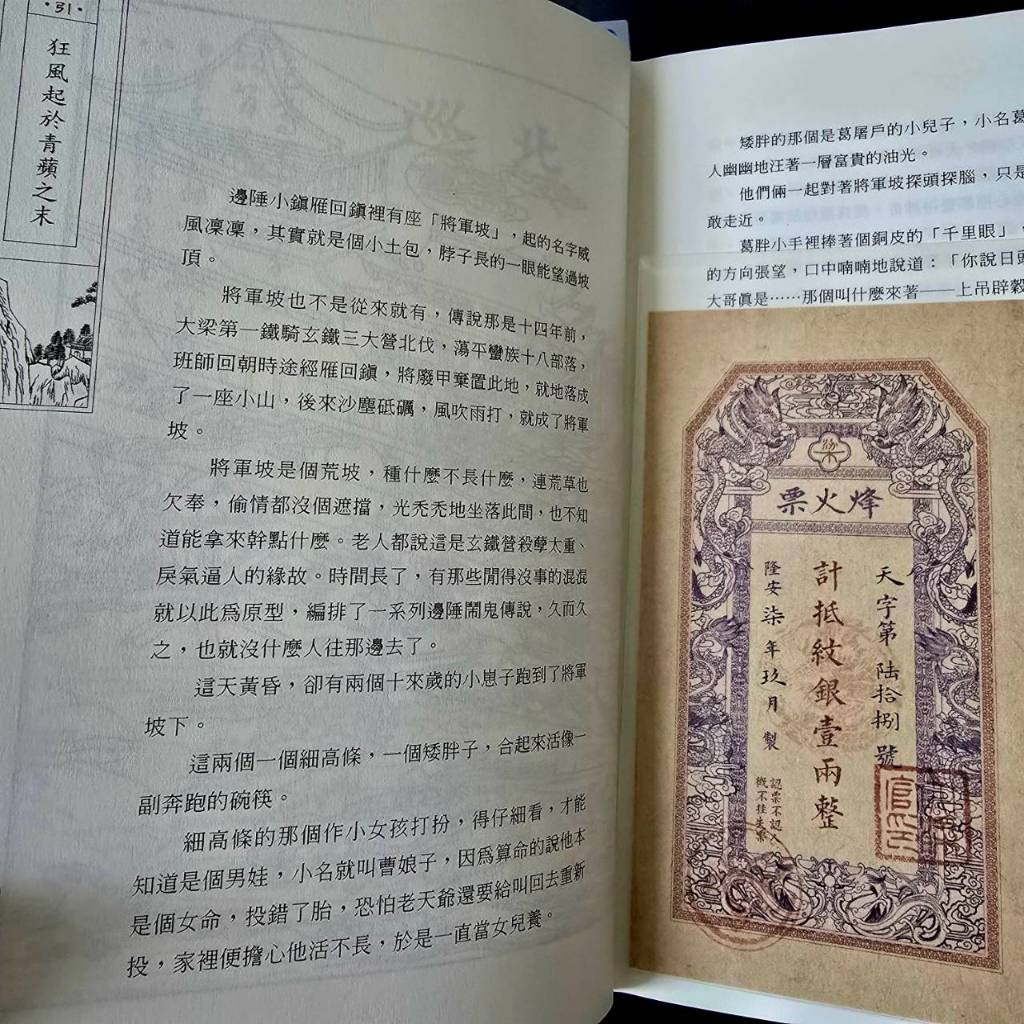 ·引·
狂風起於青蘋之末
邊陲小鎮雁回鎮裡有座「將軍坡」，起的名字威
風凜凜，其實就是個小土包，脖子長的一眼能望過坡
頂。
將軍坡也不是從來就有，傳說那是十四年前，
大梁第一鐵騎玄鐵三大營北伐，蕩平蠻族十八部落，
班師回朝時途經雁回鎮，將廢甲棄置此地，就地落成
了一座小山，後來沙塵砥礪，風吹雨打，就成了將軍
坡。
將軍坡是個荒坡，種什麼不長什麼，連荒草也
欠奉，偷情都沒個遮擋，光禿禿地坐落此間，也不知
道能拿來幹點什麼。老人都說這是玄鐵營殺孽太重、
戾氣逼人的緣故。時間長了，有那些閒得沒事的混混
就以此為原型，編排了一系列邊陲鬧鬼傳說，久而久
之，也就沒什麼人往那邊去了。
這天黃昏，卻有兩個十來歲的小崽子跑到了將軍
坡下。
這兩個一個細高條，一個矮胖子，合起來活像一
副奔跑的碗筷。
細高條的那個作小女孩打扮，得仔細看，才能
知道是個男娃，小名就叫曹娘子，因為算命的說他本
是個女命，投錯了胎，恐怕老天爺還要給叫回去重新
投，家裡便擔心他活不長，於是一直當女兒養。
矮胖的那個是葛屠戶的小兒子，小名葛
人幽幽地汪著一層富貴的油光。
他們倆一起對著將軍坡探頭探腦，只是
敢走近。
葛胖小手裡捧著個銅皮的「千里眼」，
的方向張望，口中喃喃地說道：「你說日頭
大哥真是……那個叫什麼來著——上吊辟穀
烽火票
天字第 陸拾捌 號
計抵紋銀壹兩整
隆安 柒 年 玖 月 製
認票不認人
概不掛失票
官印